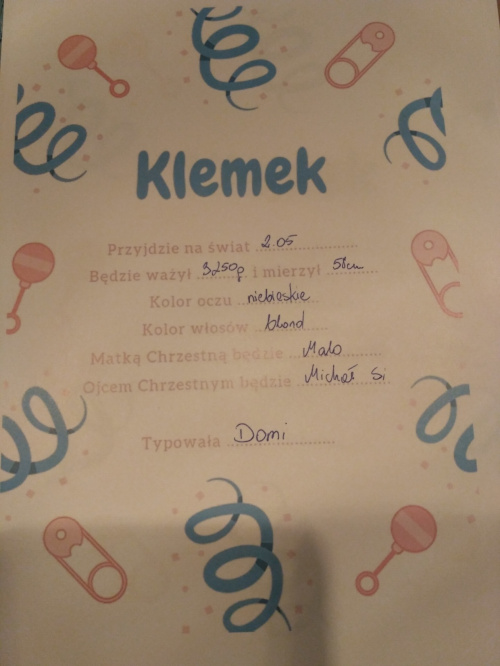 Klemek
Przyjdzie na świat 2.05
Będzie ważył 3250g i mierzył 58cm
Kolor oczu niebieskie
Kolor włosów blond
Matką Chrzestną będzie Malo
Ojcem Chrzestnym będzie Michał Si
Typowała Domi